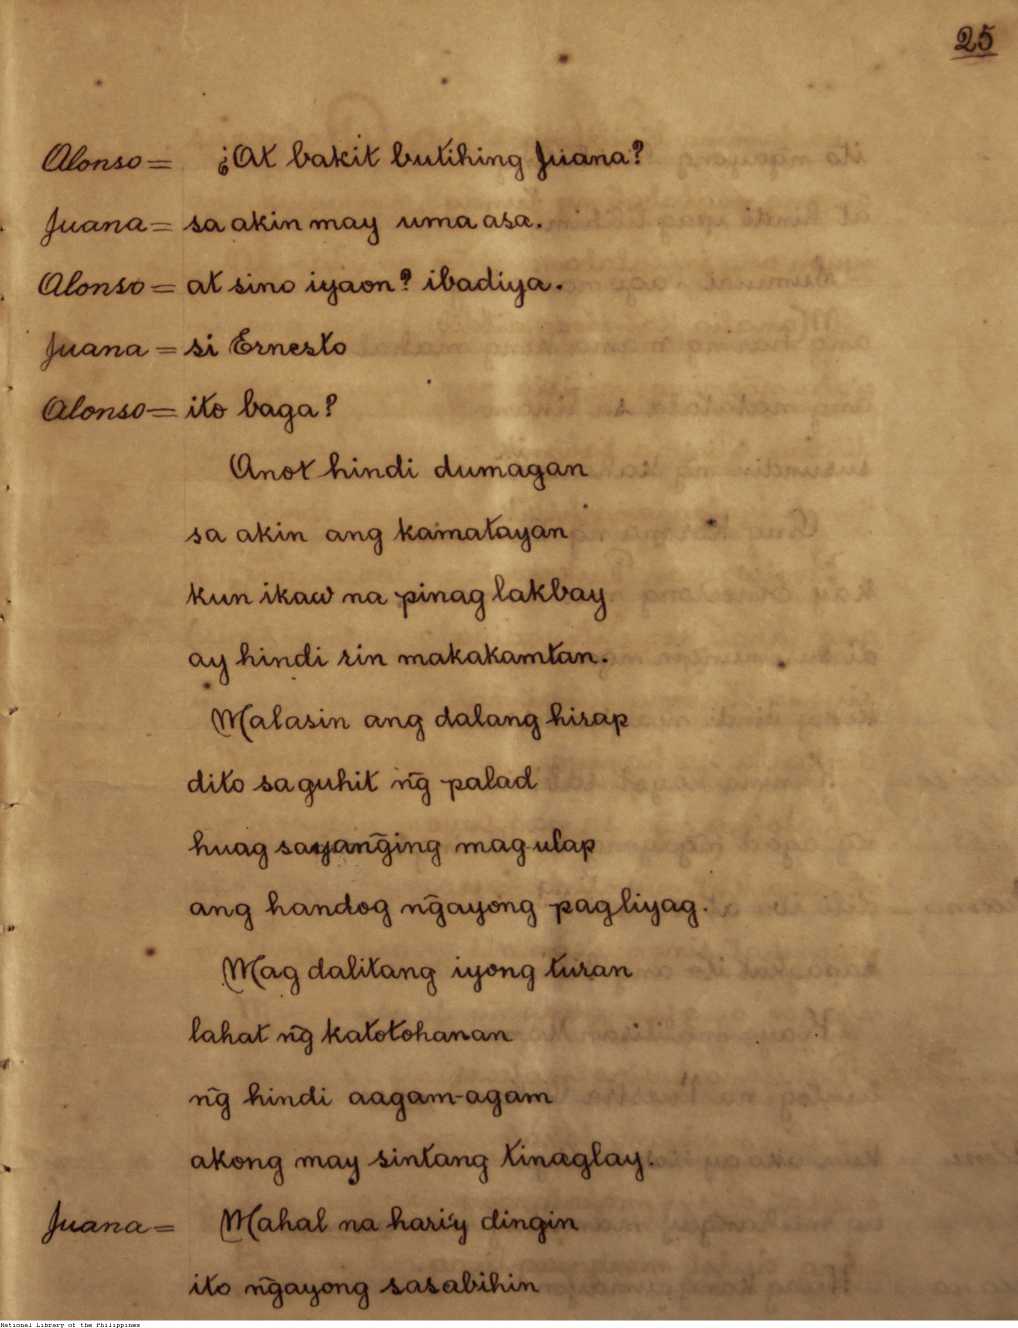 25
Alonso= ¿At bakit butihing Juana?
Juana= sa akin may uma asa.
Alonso= at sino iyaon? ibadiya.
Juana= si Ernesto
Alonso= ito baga?
Anot hindi dumagan
sa akin ang kamatayan
kun ikaw na pinag lakbay
ay hindi rin makakamtan.
Malasin ang dalang hirap
dito sa guhit ng̃ palad
huag sayang̃ing mag-ulap
ang handog ng̃ayong pagliyag.
Mag dalitang iyong turan
lahat ng̃ katotohanan
ng̃ hindi aagam-agam
akong may sintang tinaglay.
Juana= Mahal na hari'y dingin
ito ng̃ayong sasabihin
National Library of the Philippines